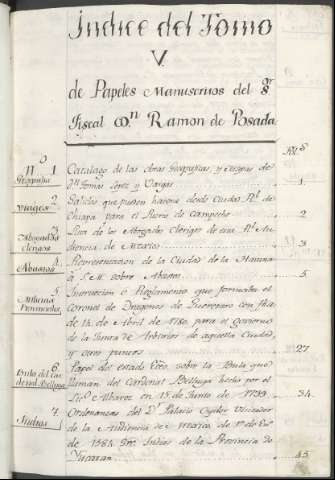 Índice del Tomo
V.
de Papeles Manuscritos del Sr.
Fiscal Dn. Ramon de Posada
Fol.s
Nº 1
Geografia
Catalogo de las obras Geograficas, y Mapas de
Dn. Tomas Lopez y Vargas 1
2.
Viages
Salidas que pueden hacerse desde Ciudad Rl. de
Chiapa para el Puerto de Campeche 2
3.
Abogados
Clerigos
Lista de los Abogados Clerigos de esta Rl. Au-
diencia de Mexico 3
4.
Abastos
Representacion de la Ciudad de la Havana
á S. M. sobre Abastos 5
5.
Milicias
Provinciales
Instruccion ó Reglamento que formaba el
Coronel de Dragones de Queretaro con fha
de 14 de Abril de 1780. para el govierno
de la Junta de Arbitrios de aquella Ciudad,
y otros puntos 27
6.
Bula del Car-
denal Belluga
Papel de estado Ecco. sobre la Bula que
llaman del Cardenal Belluga hecho por el
Lic.o Alvarez en 15 de Junio de 1739. 34.
7.
Indios
Ordenanzas del Dr. Palacio Oydor Visitador
de la Audiencia de Mexico de 1º de En.o
de 1584. Sre. Indios de la Provincia de
Yucatan 45